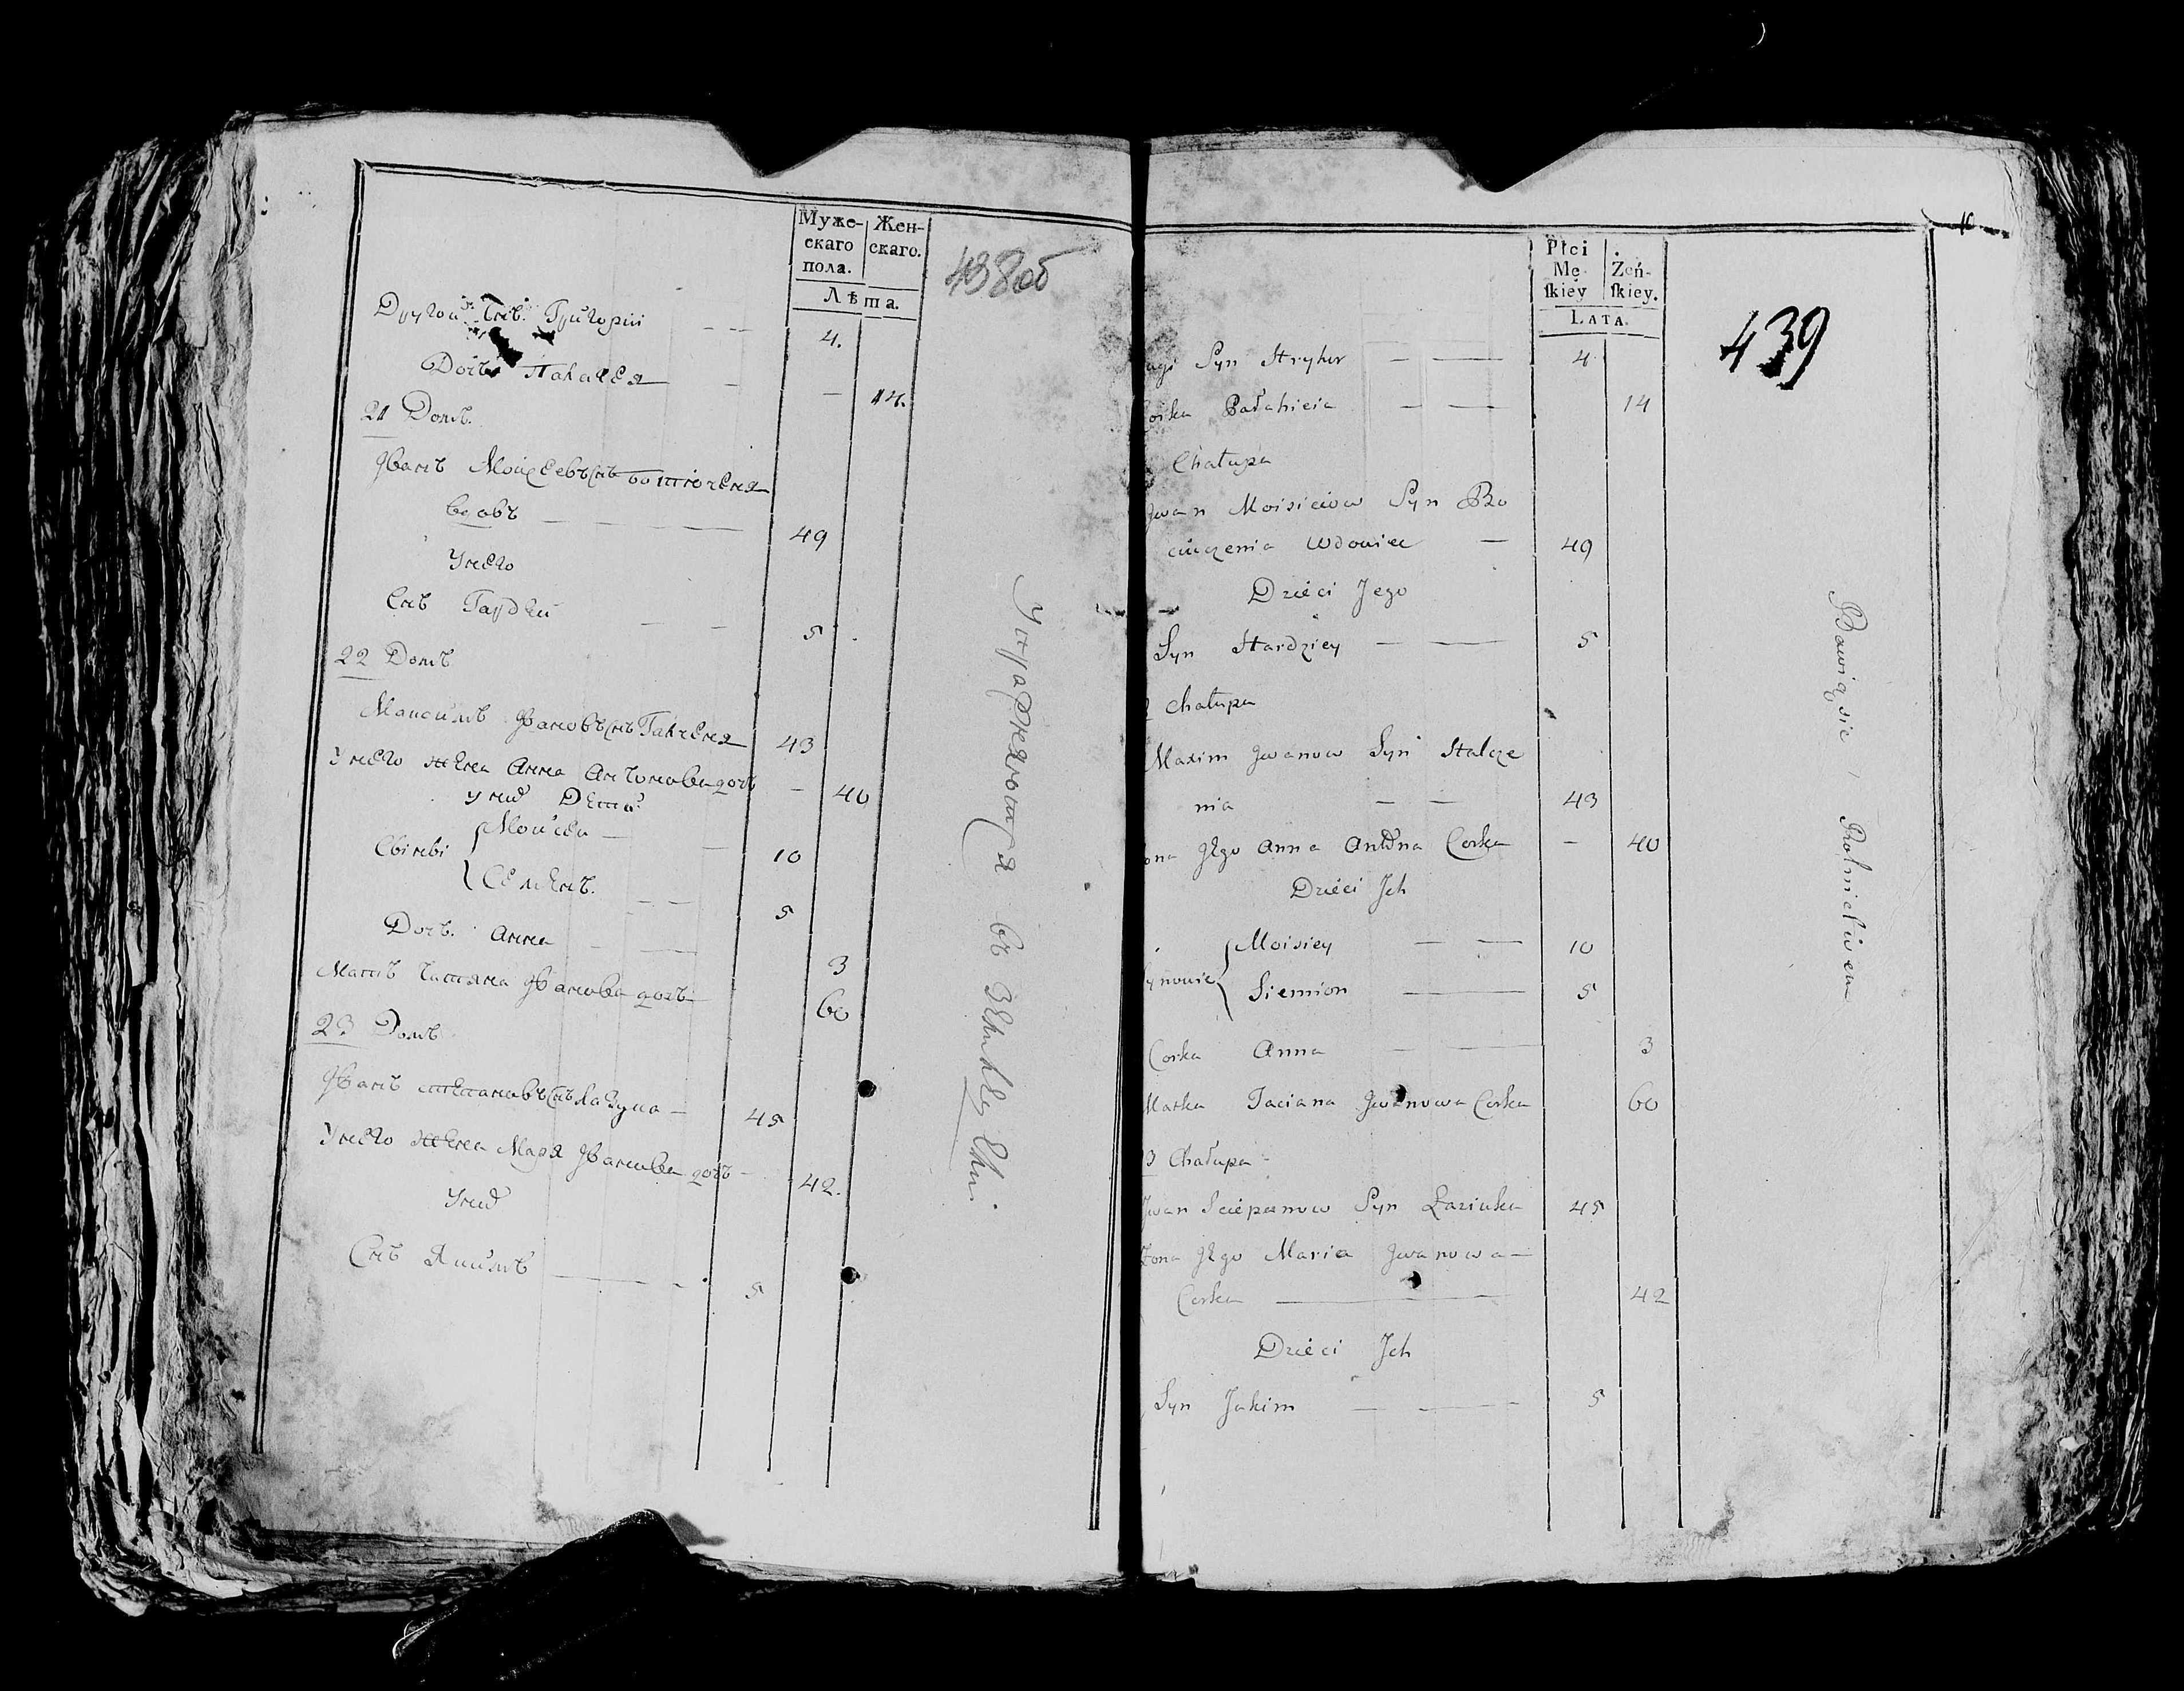 Муже-
скаго
пола.
Жен-
скаго.
Лѣта.
438об
Другой Снъ Григорій — — 4.
Дочь Палагея — — 14.
21 Домъ.
Иванъ Мойсеевъ снъ
вдовъ — — — 49
У него
Снъ Гардей — — 5
22 Домъ
Максимъ Ивановъ снъ Галченя 43
У него жена Анна Антонова дочь — 40
У них Дети
Мойсей — — 10
Семенъ. — — 5
Дочь Анна — — 3
Мать Татяна Иванова дочь 60
23 Домъ
Иванъ Степановъ снъ Лазука — 45
У него жена Маря Иванова дочь — 42.
У них
Снъ Якимъ — — 5
Упражняются въ
Płci
Mę-
skiey
Żeń-
skiey.
LATA.
439
Syn Hryhor — — 4
Pałahieia — — 14
Chałupa
Jwan Moisieiow Syn Bo
ciuczenia Wdowiec — 49
Dzieci Jego
Syn Hardziey — — 5
Chałupa
Maxim Jwanow Syn Halcze
nia — — 43
Jego Anna Corka — 40
Dzieci Jch
Moisiey — — 10
Siemion — 5
Corka Anna — — 3
Matka Taciana Jwanowa Corka 60
3 Chałupa
Jwan Sciepanow Syn Łaziuka 45
Żona Jego Maria Jwanowa —
Corka — 42
Dzieci Jch
Syn Jakim — — 5
Bawią się Rolnictwem